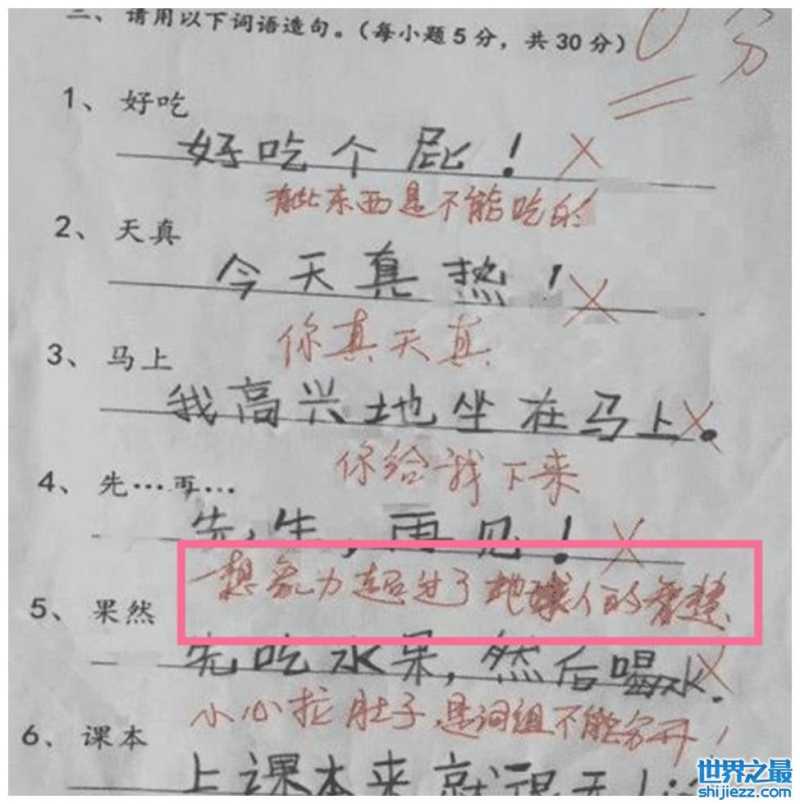 二、请用以下词语造句。(每小题5分，共30分)
0分
1、好吃
好吃个屁！
有些东西是不能吃的
2、天真
今天真热！
你真天真
3、马上
我高兴地坐在马上.
你给我下来
4、先…再…
先生，再见！
想象力超过了地球人的智慧.
5、果然
先吃水果，然后喝水.
小心拉肚子,是词组不能分开！
6、课本
上课本来就很
世界之最
shijiezz.com